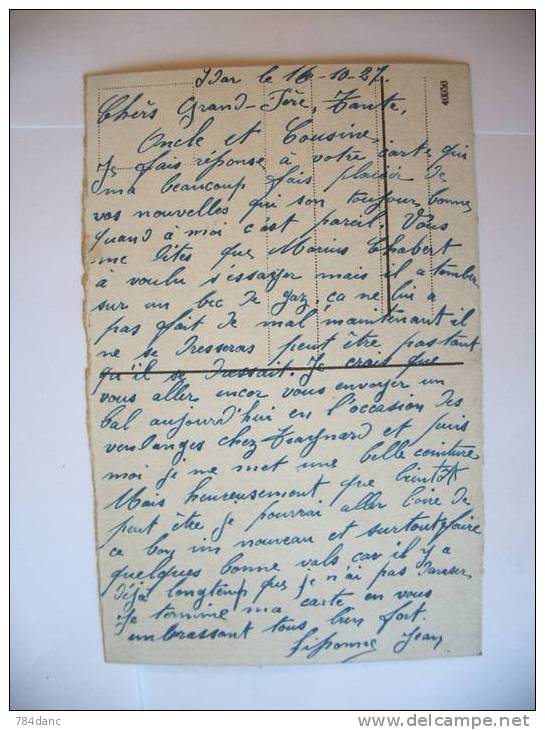 Idar le 16-10-27.
Chèrs Grand-Père, Tante,
Oncle et Cousine,
Je fais réponse à votre carte qui
ma beaucoup fais plaisir de
vos nouvelles qui son toujour bonne
quand à moi c'est pareil. Vous
me dites que Marius Chabert
à voulu s'essayer mais il a tomber
sur un bec de gaz, ça ne lui a
pas fait de mal maintenant il
ne se dresseras peut être pas tant
qu'il se dressait. Je crait que
vous aller encor vous envoyer un
bal aujourd'hui en l'occasion des
vendanges chez et puis
moi je me met une belle ceinture
Mais heureusement que bientôt
peut être je pourrai aller boire de
ce bon vin nouveau et surtout faire
quelques bonne vals car il y a
déjà longtemp que je n'ai pas danser
Je termine ma carte en vous
embrassant tous bien fort.
Jean
40636
784danc
www.delcampe.net